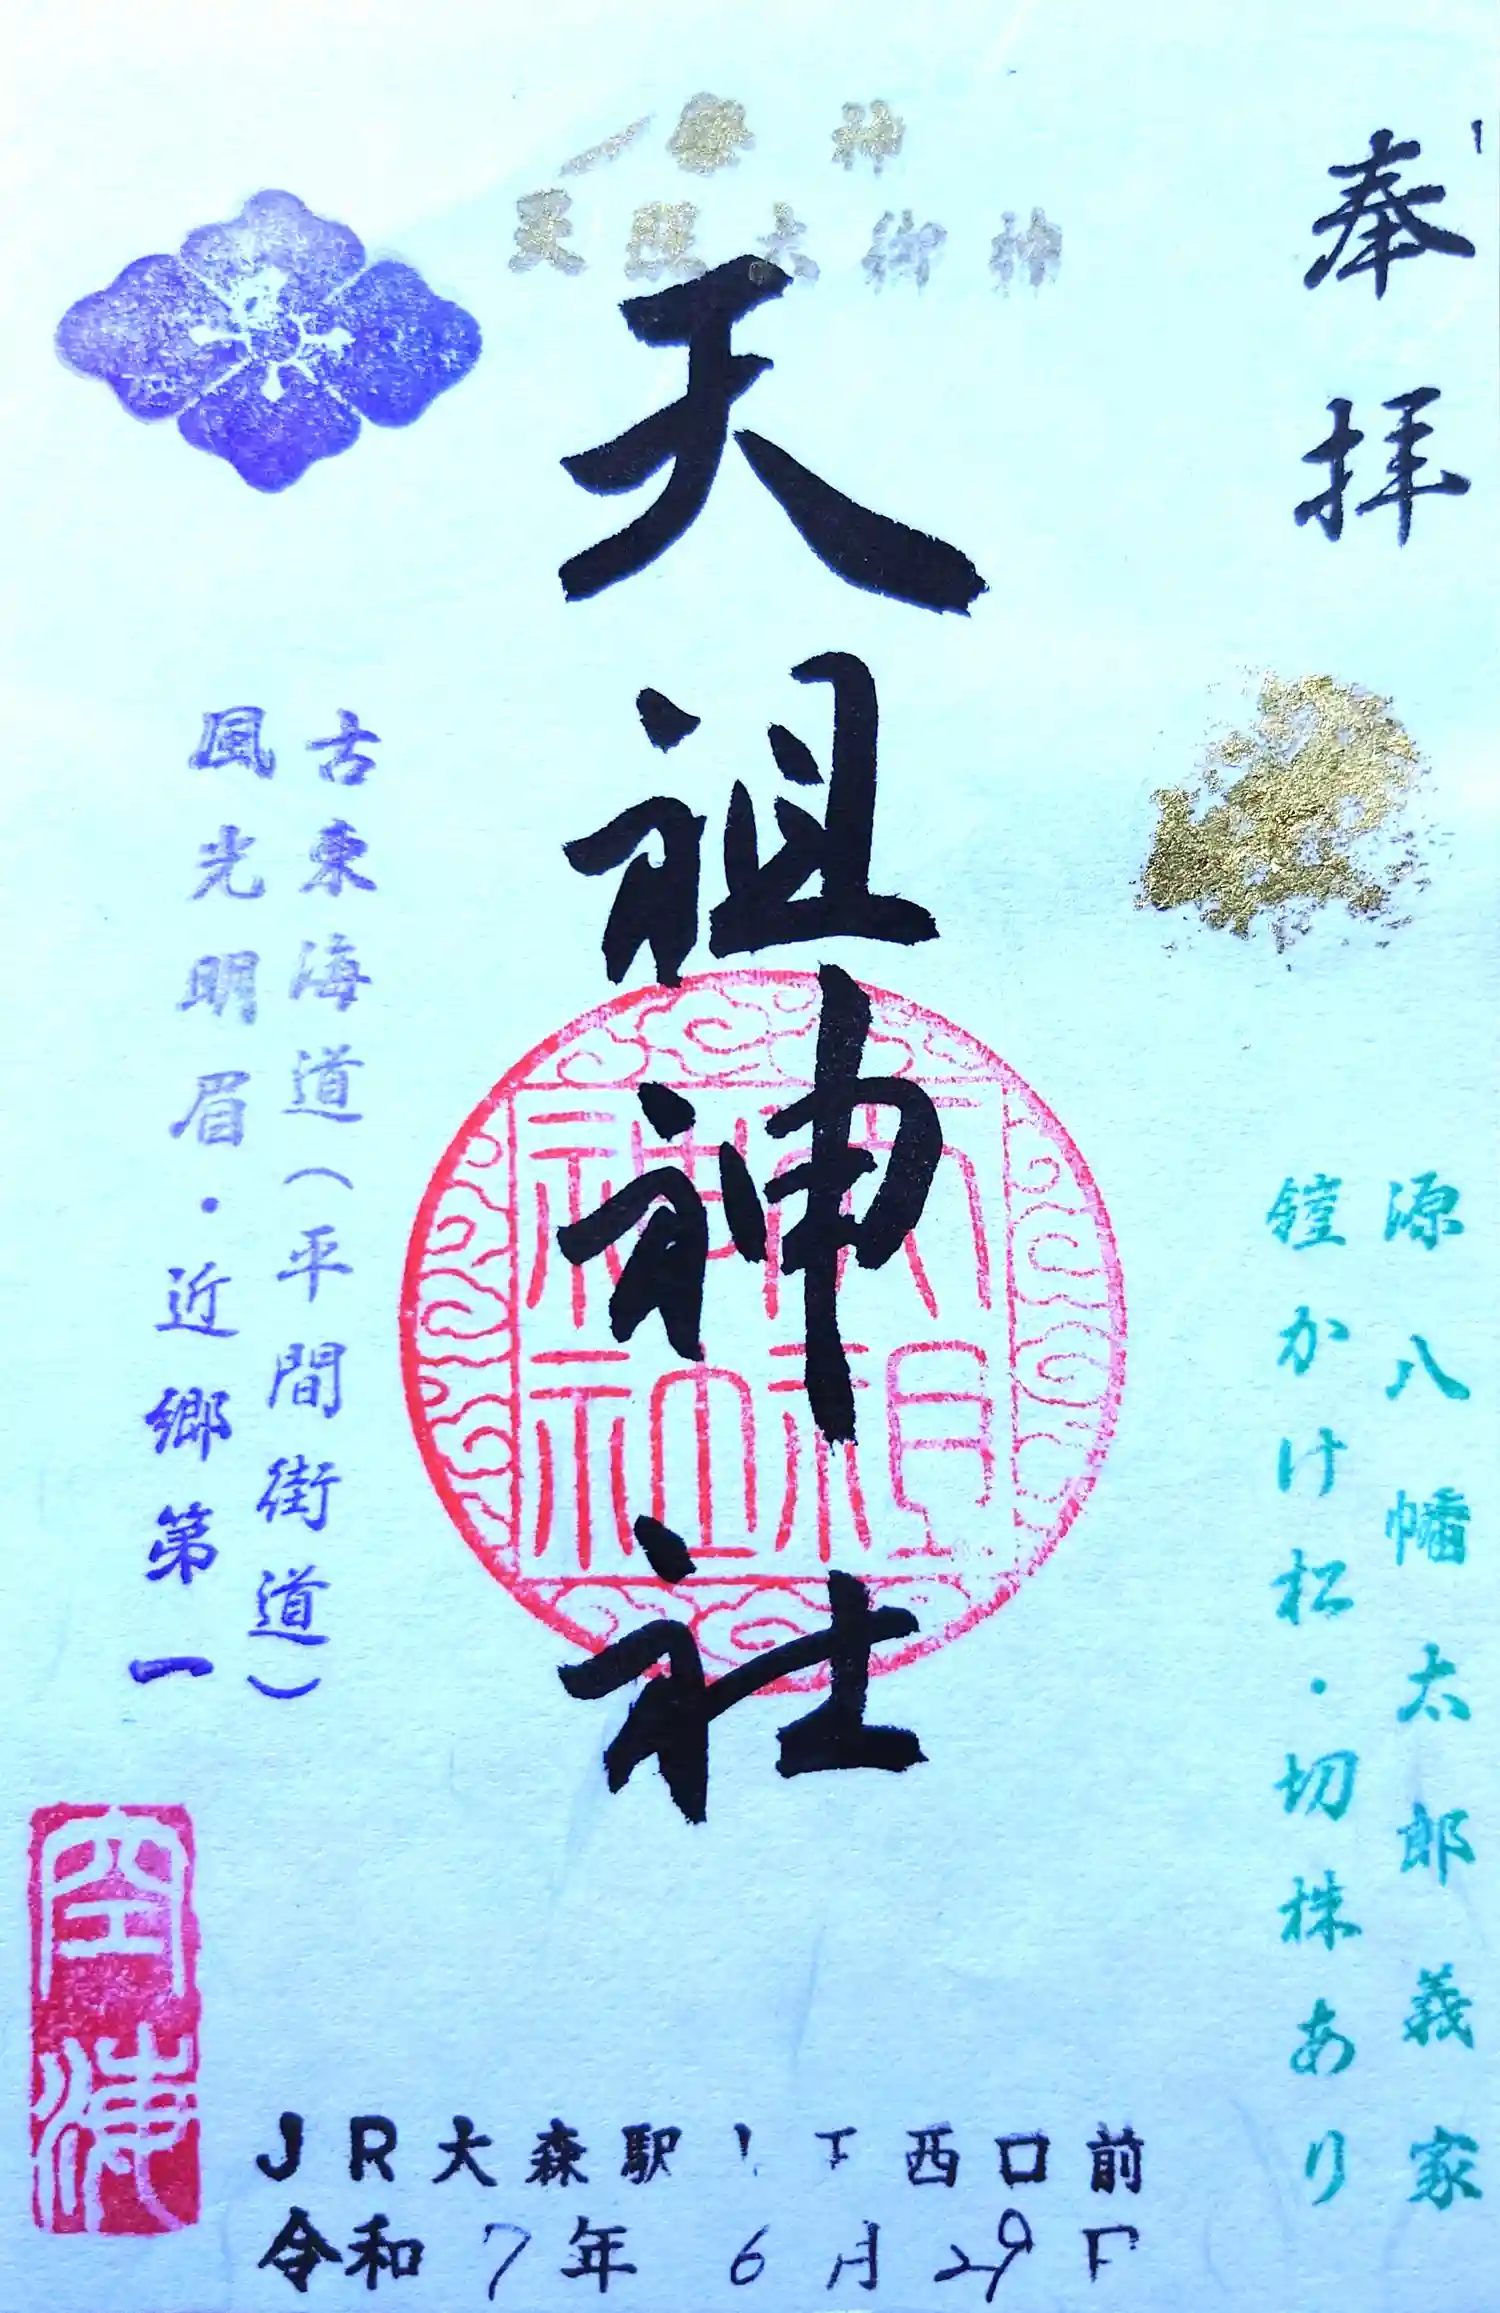 奉拝
源八幡太郎義家
鎧かけ松・切株あり
御祭神
天照大御神
天祖神社
天祖神社
古東海道(平間街道)
風光明眉・近郷第一
JR大森駅 西口前
令和7年6月29日